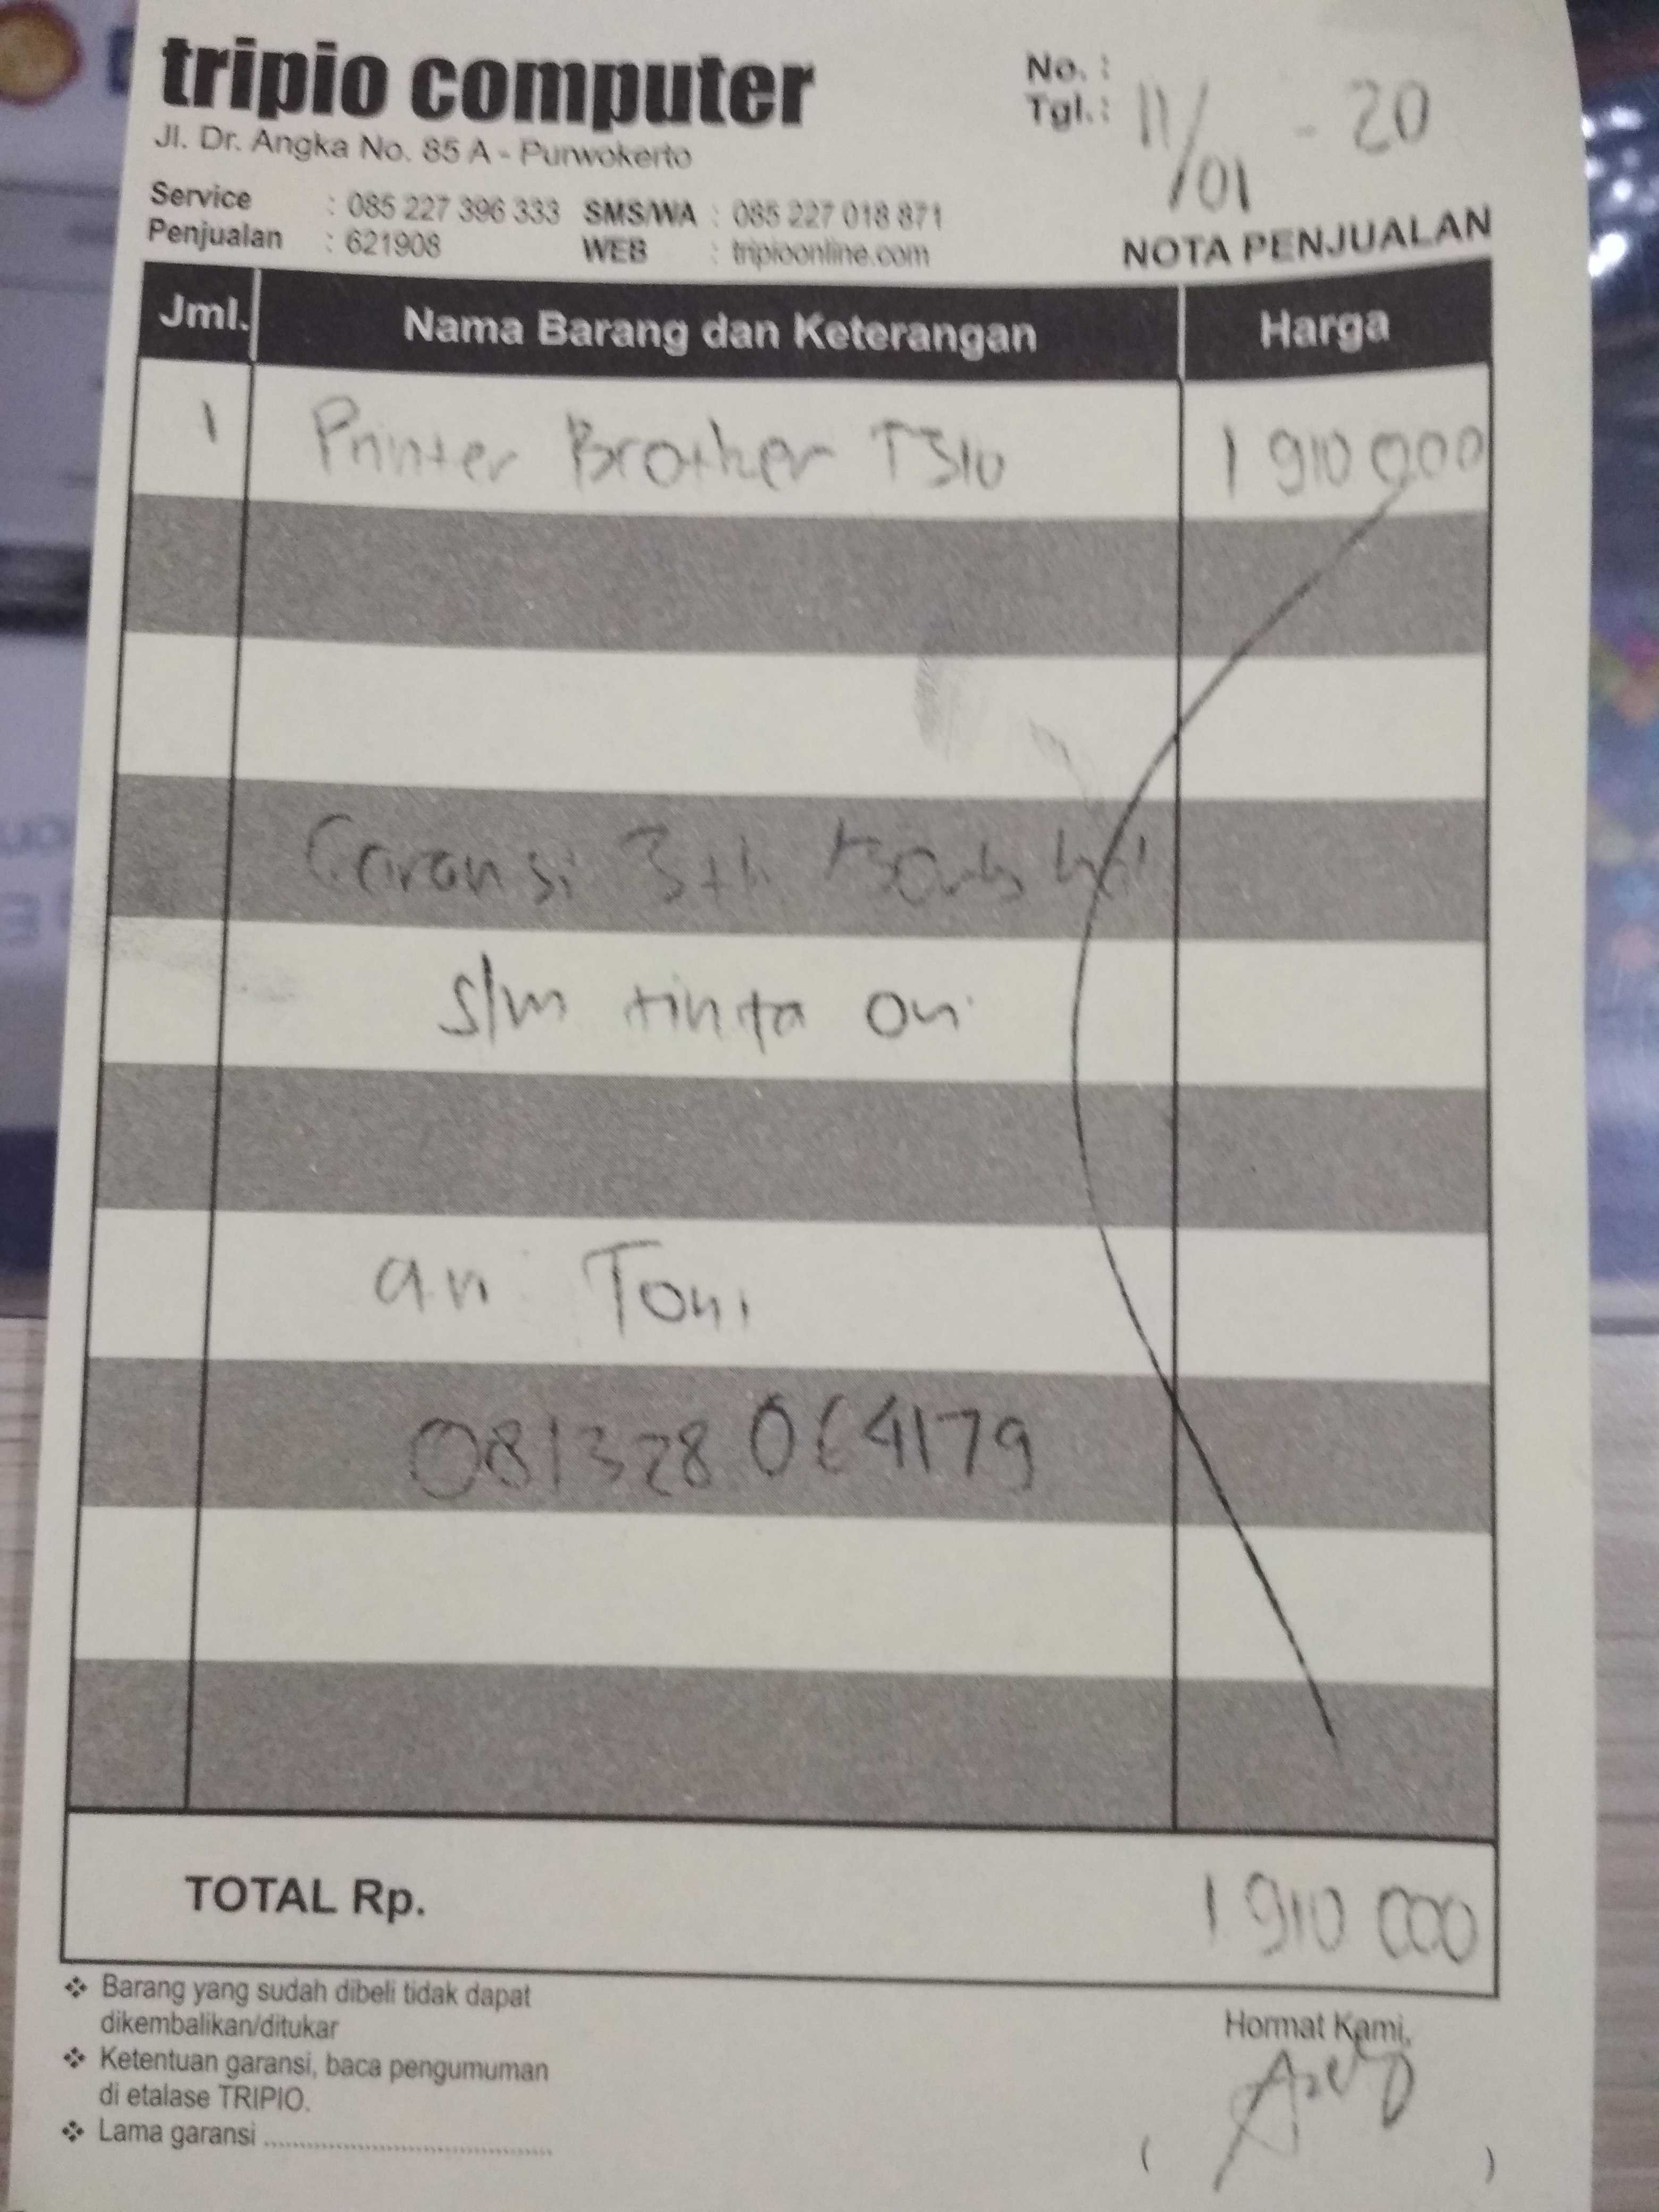 tripio computer
Jl. Dr. Angka No. 85 A - Purwokerto
No. :
Tgl. : 11/01 - 20
Service : 085 227 396 333 SMS/WA : 085 227 018 871
Penjualan : 621908 WEB : tripioonline.com
NOTA PENJUALAN
Jml. Nama Barang dan Keterangan Harga
1 Printer Brother T310 1 910 000
Garansi 3 th
s/m tinta ori
an Toni
081328 064179
TOTAL Rp. 1 910 000
Barang yang sudah dibeli tidak dapat
dikembalikan/ditukar
Ketentuan garansi, baca pengumuman
di etalase TRIPIO.
Lama garansi ........................................
Hormat Kami,
( )